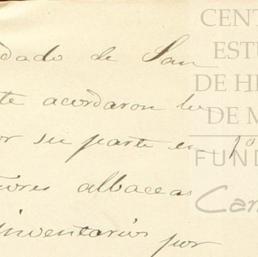 dado de San
te acordaron los
or su parte en
ores albaceas
inventarios por
CENT
ESTU
DE HI
DE M
FUND
Car